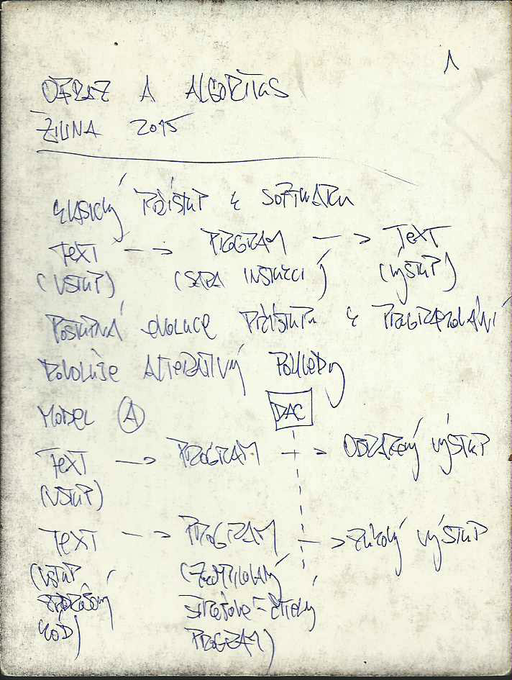 1
OBRAZ A ALGORITMUS
ŽILINA 2015
KLASICKÝ PŘÍSTUP K SOFTWARU
TEXT --> PROGRAM --> TEXT
(VSTUP) (SADA INSTRUKCÍ) (VÝSTUP)
POSTUPNÁ EVOLUCE PŘÍSTUPU K PROGRAMOVÁNÍ
POVOLUJE ALTERNATIVNÍ POHLEDY
MODEL A DAC
TEXT --> PROGRAM --> OBRAZOVÝ VÝSTUP
(VSTUP)
TEXT --> PROGRAM --> ZVUKOVÝ VÝSTUP
(VSTUP (ZKOMPILOVANÝ
ZDROJOVÝ STROJOVĚ-ČITELNÝ
KOD) PROGRAM)